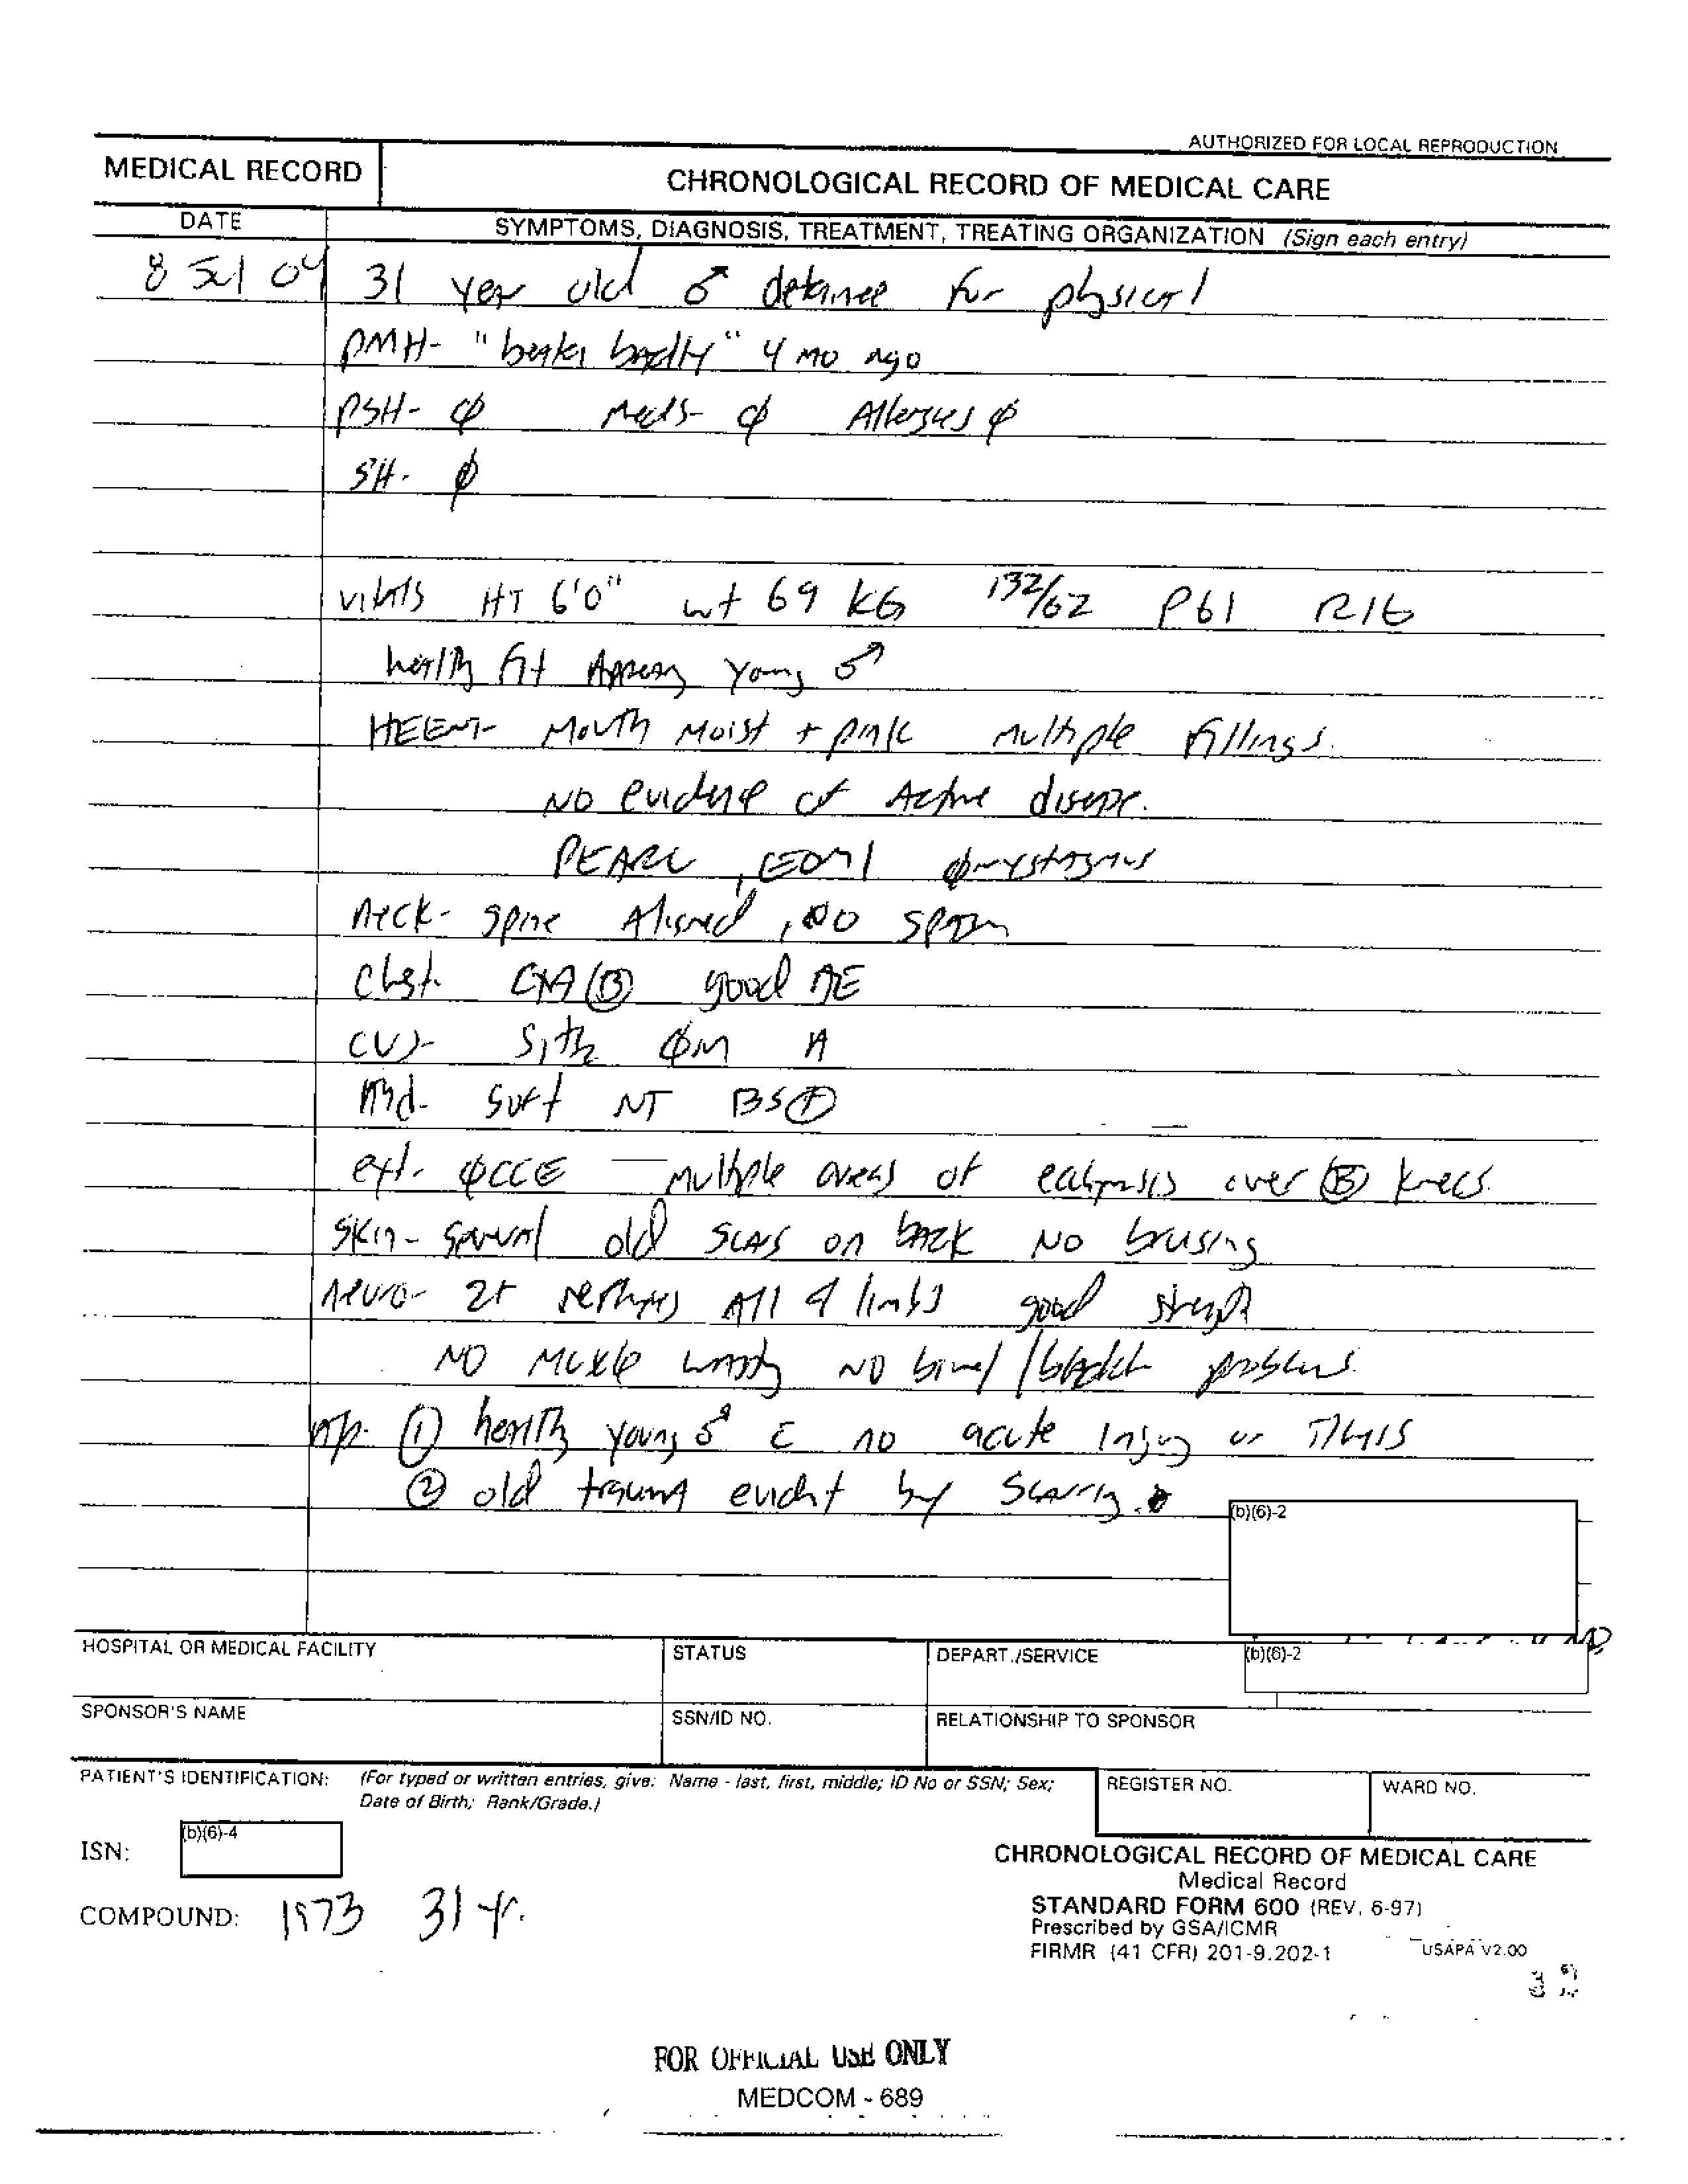 AUTHORIZED FOR LOCAL REPRODUCTION
MEDICAL RECORD
CHRONOLOGICAL RECORD OF MEDICAL CARE
DATE
SYMPTOMS, DIAGNOSIS, TREATMENT, TREATING ORGANIZATION (Sign each entry)
8 Jul 04 31 year old ♂ detainee for physical
PMH- "beaten badly" 4 mo ago
PSH- φ Meds- φ Allergies φ
SH- φ
vitals HT 6'0" wt 69 KG 132/62 P61 R16
healthy fit Appearing young ♂
HEENT- Mouth Moist + pink multiple fillings.
NO evidence of Active disease.
PEARL, EOMI φ nystagmus
Neck- spine Aligned, NO spasm
Chest- CTA (B) good AE
CV- φM
Abd- Soft NT BS(+)
ext- φCCE - Multiple areas of over (B) knees.
Skin- several old scars on back No brusing
Neuro- 2+ All 4 limbs good strength
NO Muscle wasting NO bowel/bladder problems.
(1) healthy young ♂ c̄ no acute Injury or
(2) old trauma evident by scarring.
(b)(6)-2
HOSPITAL OR MEDICAL FACILITY
STATUS
DEPART./SERVICE
(b)(6)-2
SPONSOR'S NAME
SSN/ID NO.
RELATIONSHIP TO SPONSOR
PATIENT'S IDENTIFICATION: (For typed or written entries, give: Name - last, first, middle; ID No or SSN; Sex;
Date of Birth; Rank/Grade.)
REGISTER NO.
WARD NO.
ISN: (b)(6)-4
COMPOUND: 1973 31 yr.
CHRONOLOGICAL RECORD OF MEDICAL CARE
Medical Record
STANDARD FORM 600 (REV. 6-97)
Prescribed by GSA/ICMR
FIRMR (41 CFR) 201-9.202-1
USAPA V2.00
FOR OFFICIAL USE ONLY
MEDCOM - 689